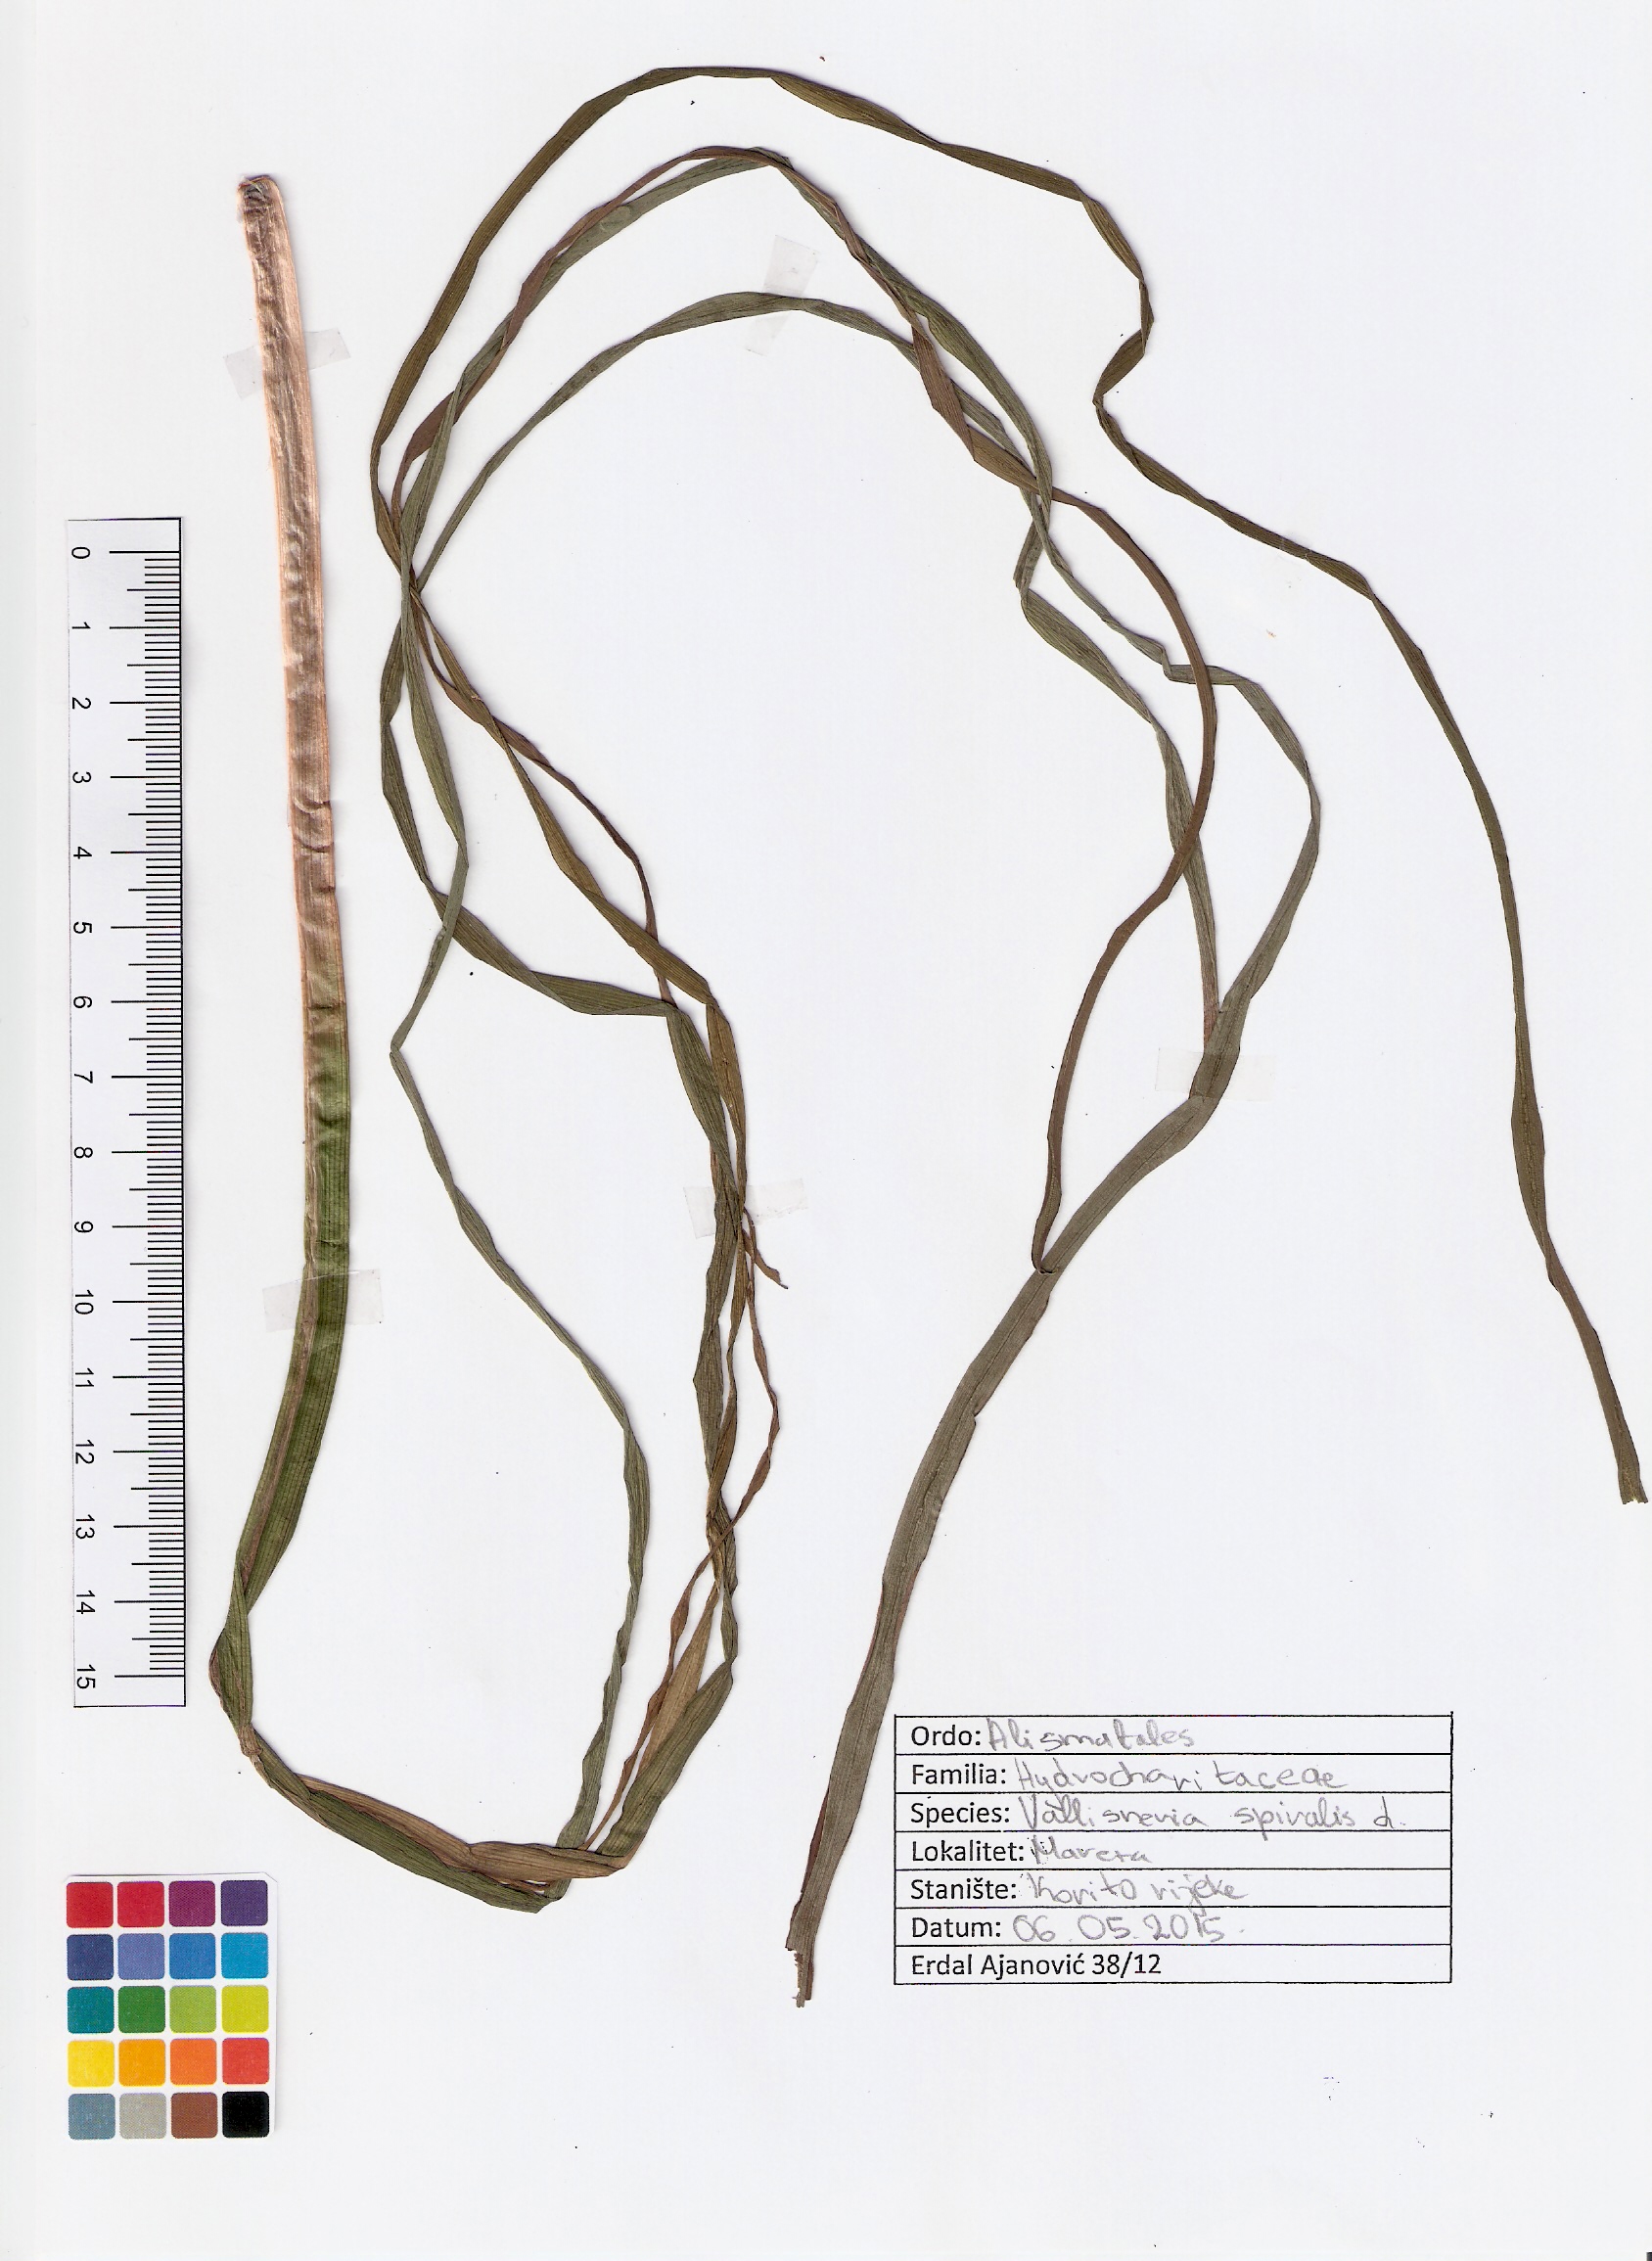 0
1
2
3
4
5
6
7
8
9
10
11
12
13
14
15
Ordo: Alismatales
Familia: Hydrocharitaceae
Species: Vallisneria spiralis L.
Lokalitet:
Stanište: Korito rijeke
Datum: 06.05.2015.
Erdal Ajanović 38/12